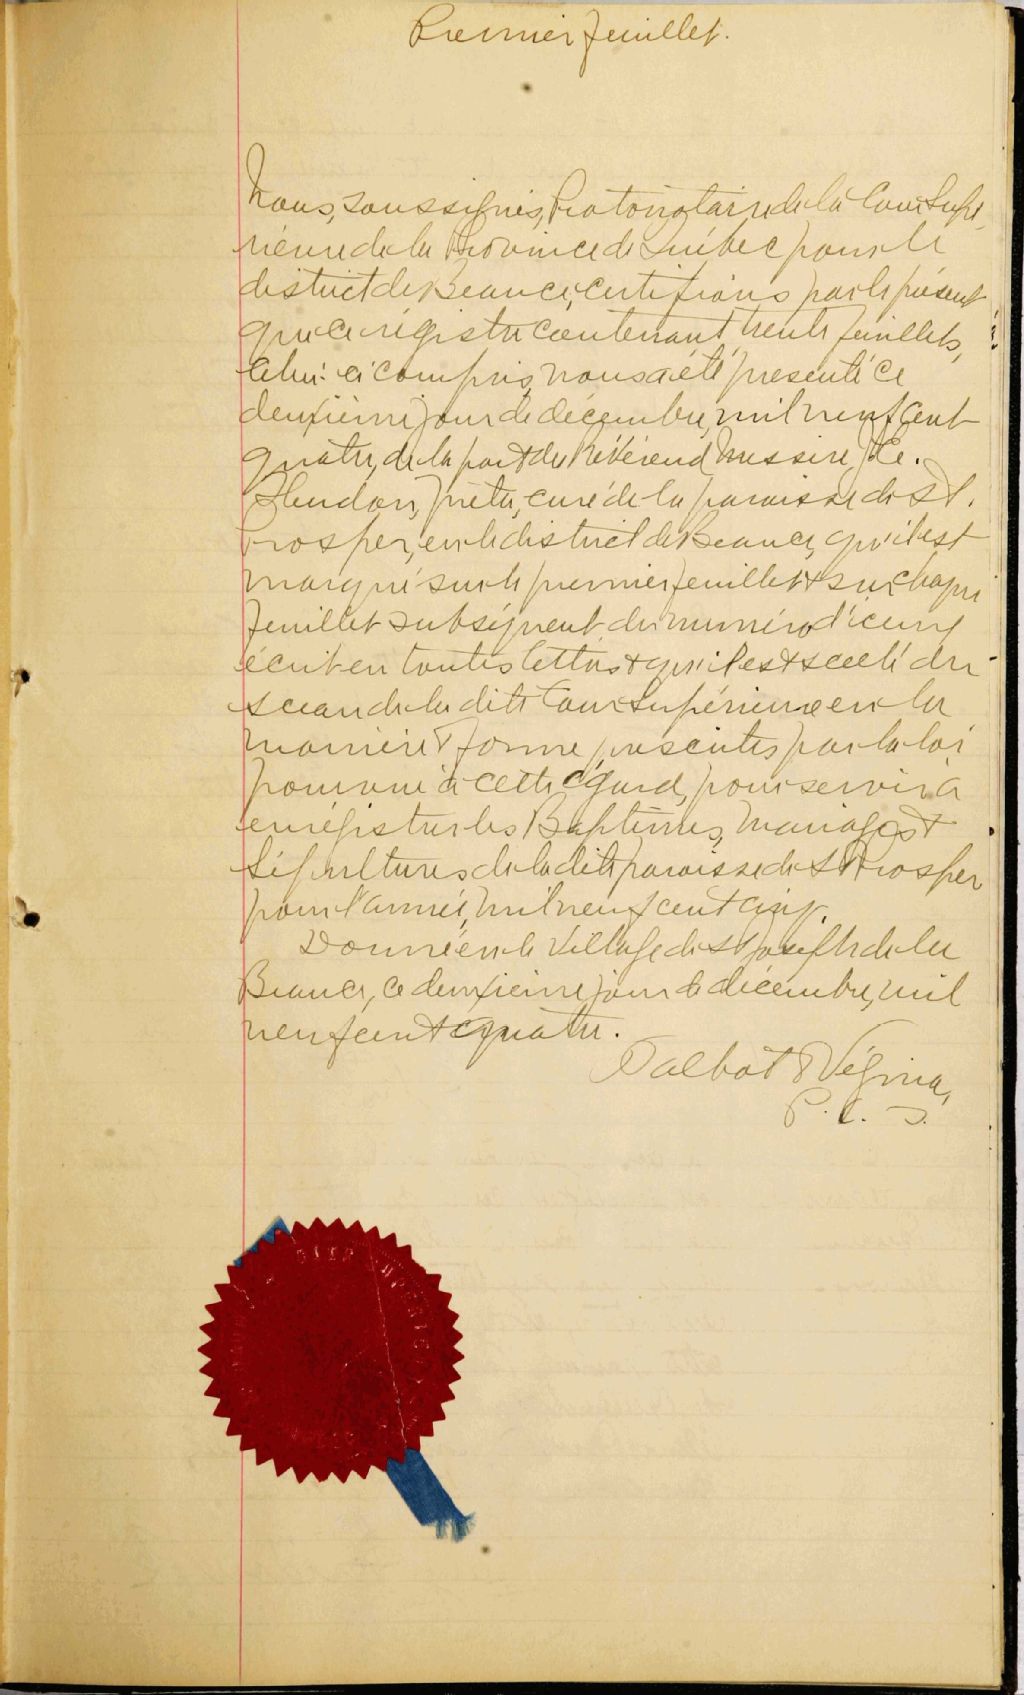 Premier feuillet.
Nous, soussignés, Protonotaire de la Cour Supé
rieure de la Province de Québec pour le
district de Beauce, certifions par le présent
que ce régistre contenant trente feuillets,
celui-ci compris, nous a été présenté ce
deuxième jour de décembre, mil neuf cent
quatre, de la part du Révérend Messire
prêtre, curé de la paroisse de St.
Prosper, en le district de Beauce, qu'il est
marqué sur le premier feuillet & sur chaque
feuillet subséquent du numéro d'icelui
écrit en toutes lettres & qu'il est scellé du
sceau de la dite Cour Supérieure en la
manière & forme prescrites par la loi
pourvue à cette égard, pour servir à
enrégistrer les Baptêmes, Mariages &
Sépultures de la dite paroisse de St Prosper
pour l'année, mil neuf cent cinq.
Donné en le Village de St Joseph de la
Beauce, ce deuxième jour de décembre, mil
neuf cent quatre.
Talbot & Vézina,
P. C. S.